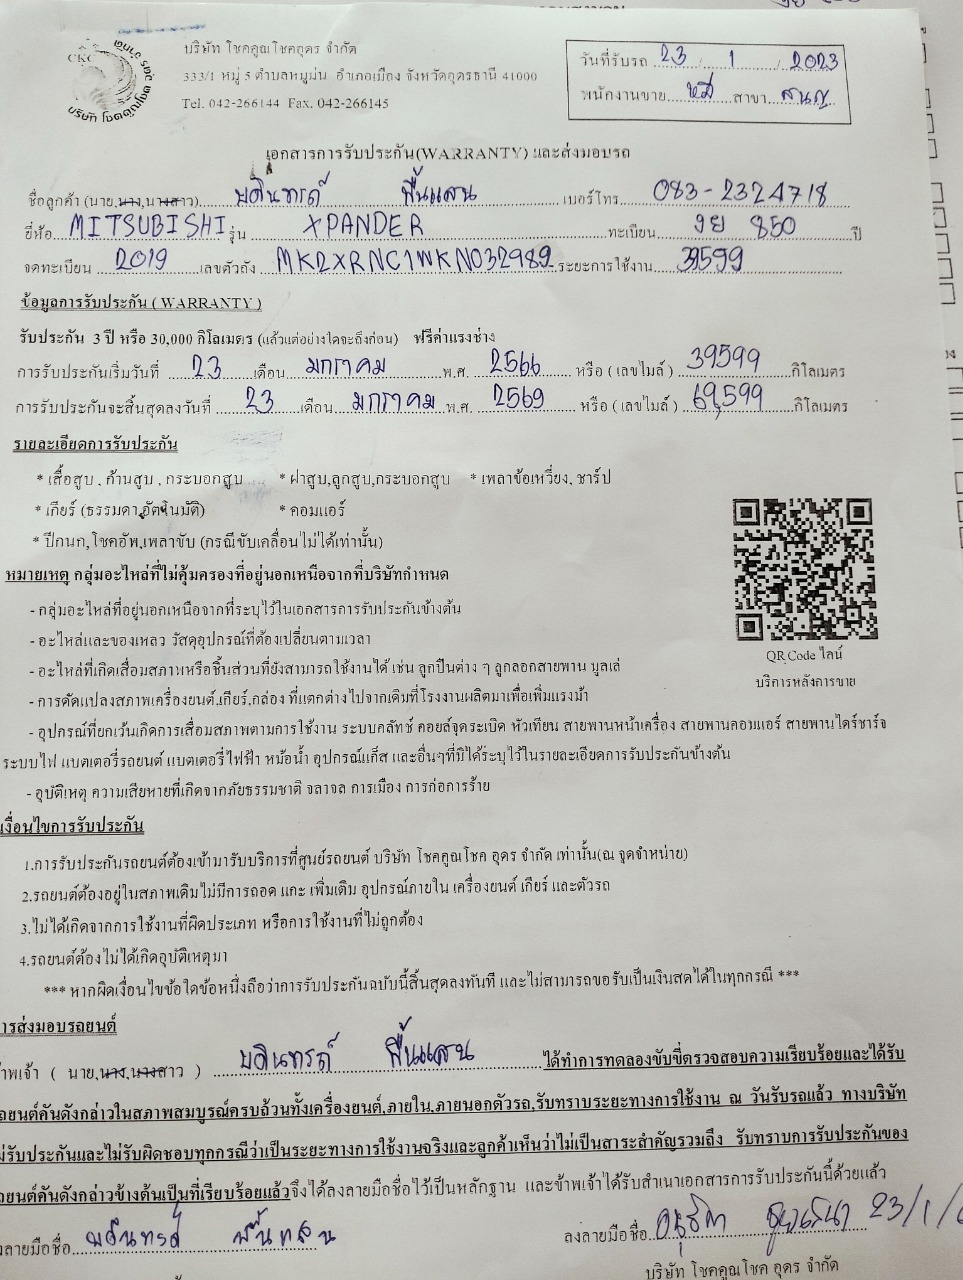 CKC
บริษัท โชคคูณโชคอุดร จำกัด
333/1 หมู่ 5 ตำบลหมูม่น อำเภอเมือง จังหวัดอุดรธานี 41000
Tel. 042-266144 Fax. 042-266145
วันที่รับรถ 23 / 1 / 2023
พนักงานขาย สาขา
เอกสารการรับประกัน(WARRANTY) และส่งมอบรถ
ชื่อลูกค้า (นาย,นาง,นางสาว) เบอร์โทร 083-2324718
ยี่ห้อ MITSUBISHI รุ่น XPANDER ทะเบียน งย 850 ปี
จดทะเบียน 2019 เลขตัวถัง MK2XRNC1WKN032989 ระยะการใช้งาน 39599
ข้อมูลการรับประกัน ( WARRANTY )
รับประกัน 3 ปี หรือ 30,000 กิโลเมตร (แล้วแต่อย่างใดจะถึงก่อน) ฟรีค่าแรงช่าง
การรับประกันเริ่มวันที่ 23 เดือน มกราคม พ.ศ. 2566 หรือ ( เลขไมล์ ) 39599 กิโลเมตร
การรับประกันจะสิ้นสุดลงวันที่ 23 เดือน มกราคม พ.ศ. 2569 หรือ ( เลขไมล์ ) 69,599 กิโลเมตร
รายละเอียดการรับประกัน
* เสื้อสูบ , ก้านสูบ , กระบอกสูบ * ฝาสูบ,ลูกสูบ,กระบอกสูบ * เพลาข้อเหวี่ยง, ชาร์ป
* เกียร์ (ธรรมดา,อัตโนมัติ) * คอมแอร์
* ปีกนก,โชคอัพ,เพลาขับ (กรณีขับเคลื่อนไม่ได้เท่านั้น)
หมายเหตุ กลุ่มอะไหล่ที่ไม่คุ้มครองที่อยู่นอกเหนือจากที่บริษัทกำหนด
- กลุ่มอะไหล่ที่อยู่นอกเหนือจากที่ระบุไว้ในเอกสารการรับประกันข้างต้น
- อะไหล่และของเหลว วัสดุอุปกรณ์ที่ต้องเปลี่ยนตามเวลา
- อะไหล่ที่เกิดเสื่อมสภาพหรือชิ้นส่วนที่ยังสามารถใช้งานได้ เช่น ลูกปืนต่าง ๆ ลูกลอกสายพาน มูลเล่
QR Code ไลน์
บริการหลังการขาย
- การดัดแปลงสภาพเครื่องยนต์,เกียร์,กล่อง ที่แตกต่างไปจากเดิมที่โรงงานผลิตมาเพื่อเพิ่มแรงม้า
- อุปกรณ์ที่ยกเว้นเกิดการเสื่อมสภาพตามการใช้งาน ระบบคลัทช์ คอยล์จุดระเบิด หัวเทียน สายพานหน้าเครื่อง สายพานคอมแอร์ สายพานไดร์ชาร์จ
ระบบไฟ แบตเตอรี่รถยนต์ แบตเตอรี่ไฟฟ้า หม้อน้ำ อุปกรณ์แก็ส และอื่นๆที่มิได้ระบุไว้ในรายละเอียดการรับประกันข้างต้น
- อุบัติเหตุ ความเสียหายที่เกิดจากภัยธรรมชาติ จลาจล การเมือง การก่อการร้าย
เงื่อนไขการรับประกัน
1.การรับประกันรถยนต์ต้องเข้ามารับบริการที่ศูนย์รถยนต์ บริษัท โชคคูณโชค อุดร จำกัด เท่านั้น(ณ จุดจำหน่าย)
2.รถยนต์ต้องอยู่ในสภาพเดิมไม่มีการถอด แกะ เพิ่มเติม อุปกรณ์ภายใน เครื่องยนต์ เกียร์ และตัวรถ
3.ไม่ได้เกิดจากการใช้งานที่ผิดประเภท หรือการใช้งานที่ไม่ถูกต้อง
4.รถยนต์ต้องไม่ได้เกิดอุบัติเหตุมา
*** หากผิดเงื่อนไขข้อใดข้อหนึ่งถือว่าการรับประกันฉบับนี้สิ้นสุดลงทันที และไม่สามารถขอรับเป็นเงินสดได้ในทุกกรณี ***
การส่งมอบรถยนต์
ข้าพเจ้า ( นาย,นาง,นางสาว ) ได้ทำการทดลองขับขี่ตรวจสอบความเรียบร้อยและได้รับ
รถยนต์คันดังกล่าวในสภาพสมบูรณ์ครบถ้วนทั้งเครื่องยนต์,ภายใน,ภายนอกตัวรถ,รับทราบระยะทางการใช้งาน ณ วันรับรถแล้ว ทางบริษัท
ไม่รับประกันและไม่รับผิดชอบทุกกรณีว่าเป็นระยะทางการใช้งานจริงและลูกค้าเห็นว่าไม่เป็นสาระสำคัญรวมถึง รับทราบการรับประกันของ
รถยนต์คันดังกล่าวข้างต้นเป็นที่เรียบร้อยแล้วจึงได้ลงลายมือชื่อไว้เป็นหลักฐาน และข้าพเจ้าได้รับสำเนาเอกสารการรับประกันนี้ด้วยแล้ว
ลงลายมือชื่อ ลงลายมือชื่อ 23/1/
บริษัท โชคคูณโชค อุดร จำกัด